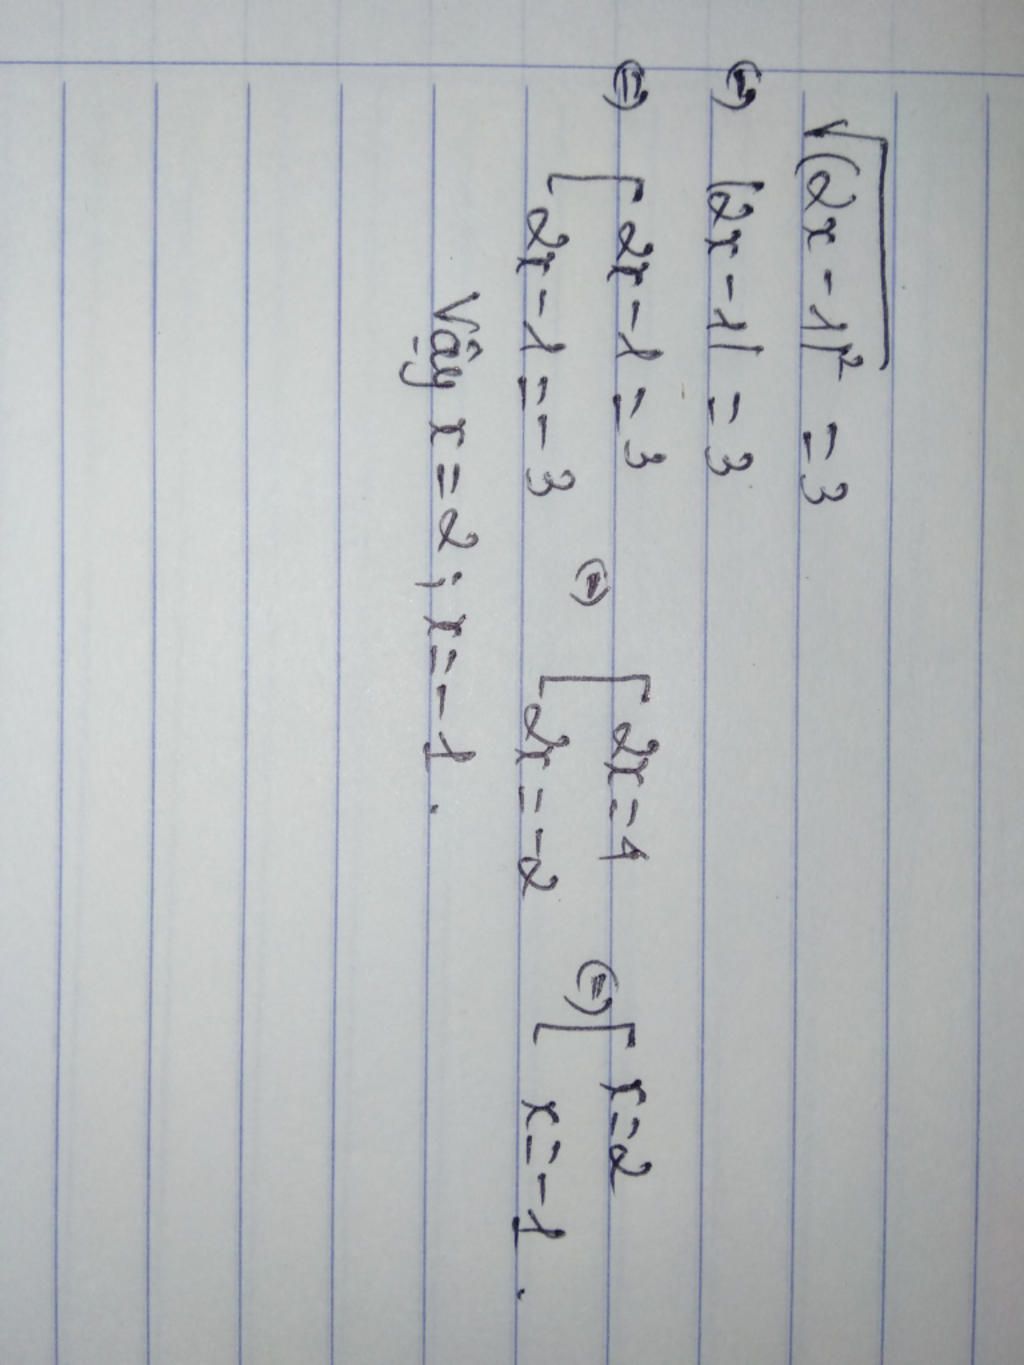 √(2x-1)² = 3
⇔ |2x-1| = 3
⇔ [ 2x-1 = 3 ⇔ [ 2x = 4 ⇔ [ x = 2
2x-1 = -3 2x = -2 x = -1.
Vậy x = 2 ; x = -1.